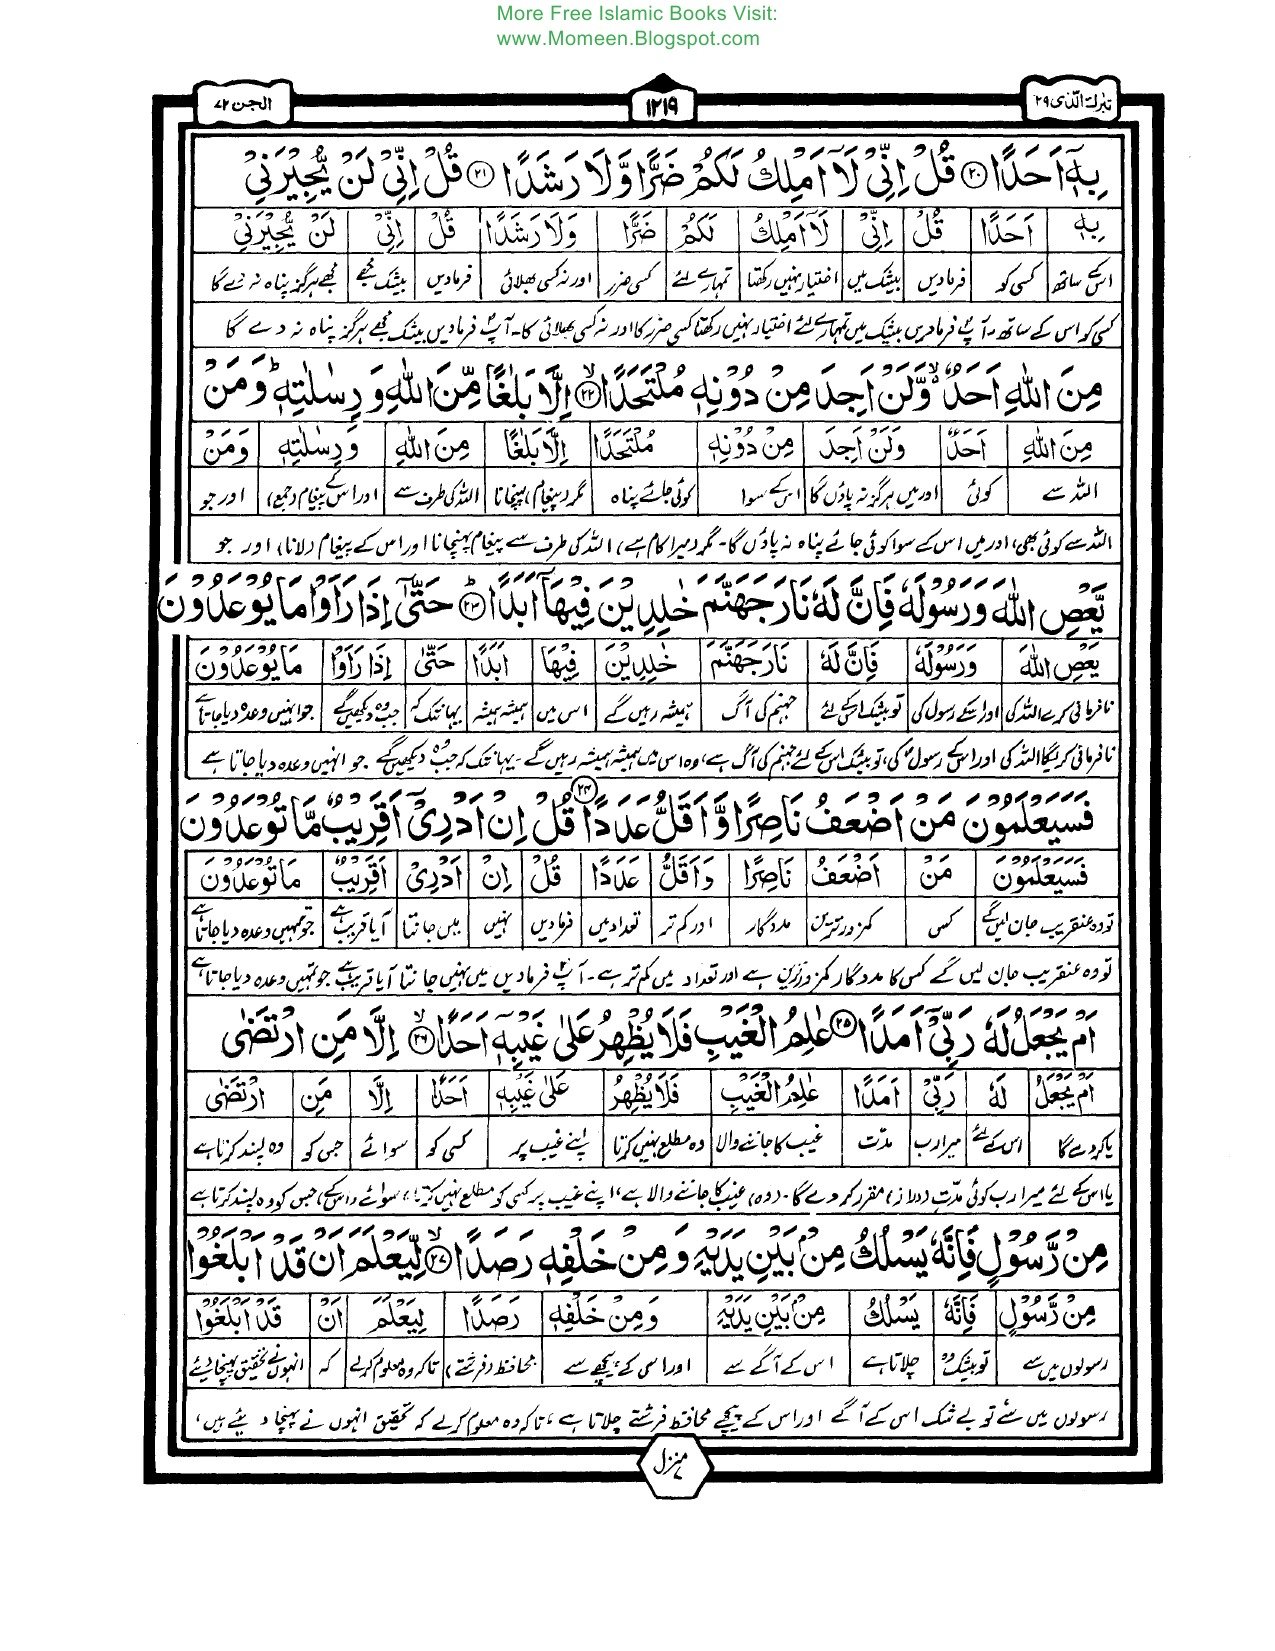 More Free Islamic Books Visit:
www.Momeen.Blogspot.com
تبٰرك الذى ٢٩
١٢١٩
الجن ٧٢
بِهٖٓ اَحَدًا ۝٢٠ قُلْ اِنِّىْ لَآ اَمْلِكُ لَكُمْ ضَرًّا وَّلَا رَشَدًا ۝٢١ قُلْ اِنِّىْ لَنْ يُّجِيْرَنِىْ
بِهٖٓ اَحَدًا قُلْ اِنِّىْ لَآ اَمْلِكُ لَكُمْ ضَرًّا وَّلَا رَشَدًا قُلْ اِنِّىْ لَنْ يُّجِيْرَنِىْ
اسکے ساتھ کسی کو فرمادیں بیشک میں اختیار نہیں رکھتا تمہارے لئے کسی ضرر اور نہ کسی بھلائی فرمادیں بیشک مجھے مجھے ہرگز پناہ نہ دے گا
کسی کو اس کے ساتھ۔ آپؐ فرمادیں بیشک میں تمہارے لئے اختیار نہیں رکھتا کسی ضرر کا اور نہ کسی بھلائی کا۔ آپؐ فرمادیں بیشک مجھے ہرگز پناہ نہ دے گا
مِنَ اللّٰهِ اَحَدٌ ۙ وَّلَنْ اَجِدَ مِنْ دُوْنِهٖ مُلْتَحَدًا ۝٢٢ اِلَّا بَلٰغًا مِّنَ اللّٰهِ وَ رِسٰلٰتِهٖ ؕ وَمَنْ
مِنَ اللّٰهِ اَحَدٌ وَلَنْ اَجِدَ مِنْ دُوْنِهٖ مُلْتَحَدًا اِلَّا بَلٰغًا مِنَ اللّٰهِ وَ رِسٰلٰتِهٖ وَمَنْ
اللہ سے کوئی اور میں ہرگز نہ پاؤں گا اسکے سوا کوئی جائے پناہ مگر (پیغام) پہنچانا اللہ کی طرف سے اور اس کے پیغام (جمع) اور جو
اللہ سے کوئی بھی، اور میں اس کے سوا کوئی جائے پناہ نہ پاؤں گا۔ مگر (میرا کام ہے) اللہ کی طرف سے پیغام پہنچانا اور اس کے پیغام (لانا) اور جو
يَّعْصِ اللّٰهَ وَرَسُوْلَهٗ فَاِنَّ لَهٗ نَارَ جَهَنَّمَ خٰلِدِيْنَ فِيْهَآ اَبَدًا ۝٢٣ حَتّٰٓى اِذَا رَاَوْا مَا يُوْعَدُوْنَ
يَعْصِ اللّٰهَ وَرَسُوْلَهٗ فَاِنَّ لَهٗ نَارَ جَهَنَّمَ خٰلِدِيْنَ فِيْهَا اَبَدًا حَتّٰٓى اِذَا رَاَوْا مَا يُوْعَدُوْنَ
نافرمانی کرے اللہ کی اور اسکے رسول کی تو بیشک اسکے لئے جہنم کی آگ ہمیشہ رہیں گے اس میں ہمیشہ ہمیشہ یہانتک کہ جب وہ دیکھیں گے جو انہیں وعدہ دیا جاتا ہے
نافرمانی کریگا اللہ کی اور اسکے رسولؐ کی، تو بیشک اس کے لئے جہنم کی آگ ہے، وہ اس میں ہمیشہ ہمیشہ رہیں گے۔ یہانتک کہ جب وہ دیکھیں گے جو انہیں وعدہ دیا جاتا ہے
فَسَيَعْلَمُوْنَ مَنْ اَضْعَفُ نَاصِرًا وَّاَقَلُّ عَدَدًا ۝٢٤ قُلْ اِنْ اَدْرِىْٓ اَقَرِيْبٌ مَّا تُوْعَدُوْنَ
فَسَيَعْلَمُوْنَ مَنْ اَضْعَفُ نَاصِرًا وَاَقَلُّ عَدَدًا قُلْ اِنْ اَدْرِىْٓ اَقَرِيْبٌ مَا تُوْعَدُوْنَ
تو وہ عنقریب جان لیں گے کس کمزور ترین مددگار اور کم تر تعداد میں فرمادیں نہیں میں جانتا آیا قریب ہے جو تمہیں وعدہ دیا جاتا ہے
تو وہ عنقریب جان لیں گے کس کا مددگار کمزور ترین ہے اور تعداد میں کم تر ہے۔ آپؐ فرمادیں میں نہیں جانتا آیا قریب ہے جو تمہیں وعدہ دیا جاتا ہے
اَمْ يَجْعَلُ لَهٗ رَبِّىْٓ اَمَدًا ۝٢٥ عٰلِمُ الْغَيْبِ فَلَا يُظْهِرُ عَلٰى غَيْبِهٖٓ اَحَدًا ۝٢٦ اِلَّا مَنِ ارْتَضٰى
اَمْ يَجْعَلُ لَهٗ رَبِّىْٓ اَمَدًا عٰلِمُ الْغَيْبِ فَلَا يُظْهِرُ عَلٰى غَيْبِهٖٓ اَحَدًا اِلَّا مَنِ ارْتَضٰى
یا کردے گا اس کے لئے میرا رب مدّت غیب کا جاننے والا وہ مطلع نہیں کرتا اپنے غیب پر کسی کو سوائے جس کو وہ پسند کرتا ہے
یا اس کے لئے میرا رب کوئی مدّت (دراز) مقرر کردے گا۔ (وہ) غیب کا جاننے والا ہے، اپنے غیب پر کسی کو مطلع نہیں کرتا، سوائے (اسکے) جس کو وہ پسند کرتا ہے
مِنْ رَّسُوْلٍ فَاِنَّهٗ يَسْلُكُ مِنْۢ بَيْنِ يَدَيْهِ وَ مِنْ خَلْفِهٖ رَصَدًا ۝٢٧ لِّيَعْلَمَ اَنْ قَدْ اَبْلَغُوْا
مِنْ رَّسُوْلٍ فَاِنَّهٗ يَسْلُكُ مِنْۢ بَيْنِ يَدَيْهِ وَ مِنْ خَلْفِهٖ رَصَدًا لِيَعْلَمَ اَنْ قَدْ اَبْلَغُوْا
رسولوں میں سے تو بیشک وہ چلاتا ہے اس کے آگے سے اور اسی کے پیچھے سے محافظ (فرشتے) تاکہ وہ معلوم کرلے کہ انہوں نے تحقیق پہنچا دیئے
رسولوں میں سے تو بے شک اس کے آگے اور اس کے پیچھے محافظ فرشتے چلاتا ہے، تاکہ وہ معلوم کرلے کہ تحقیق انہوں نے پہنچا دیئے ہیں،
منزل ٧